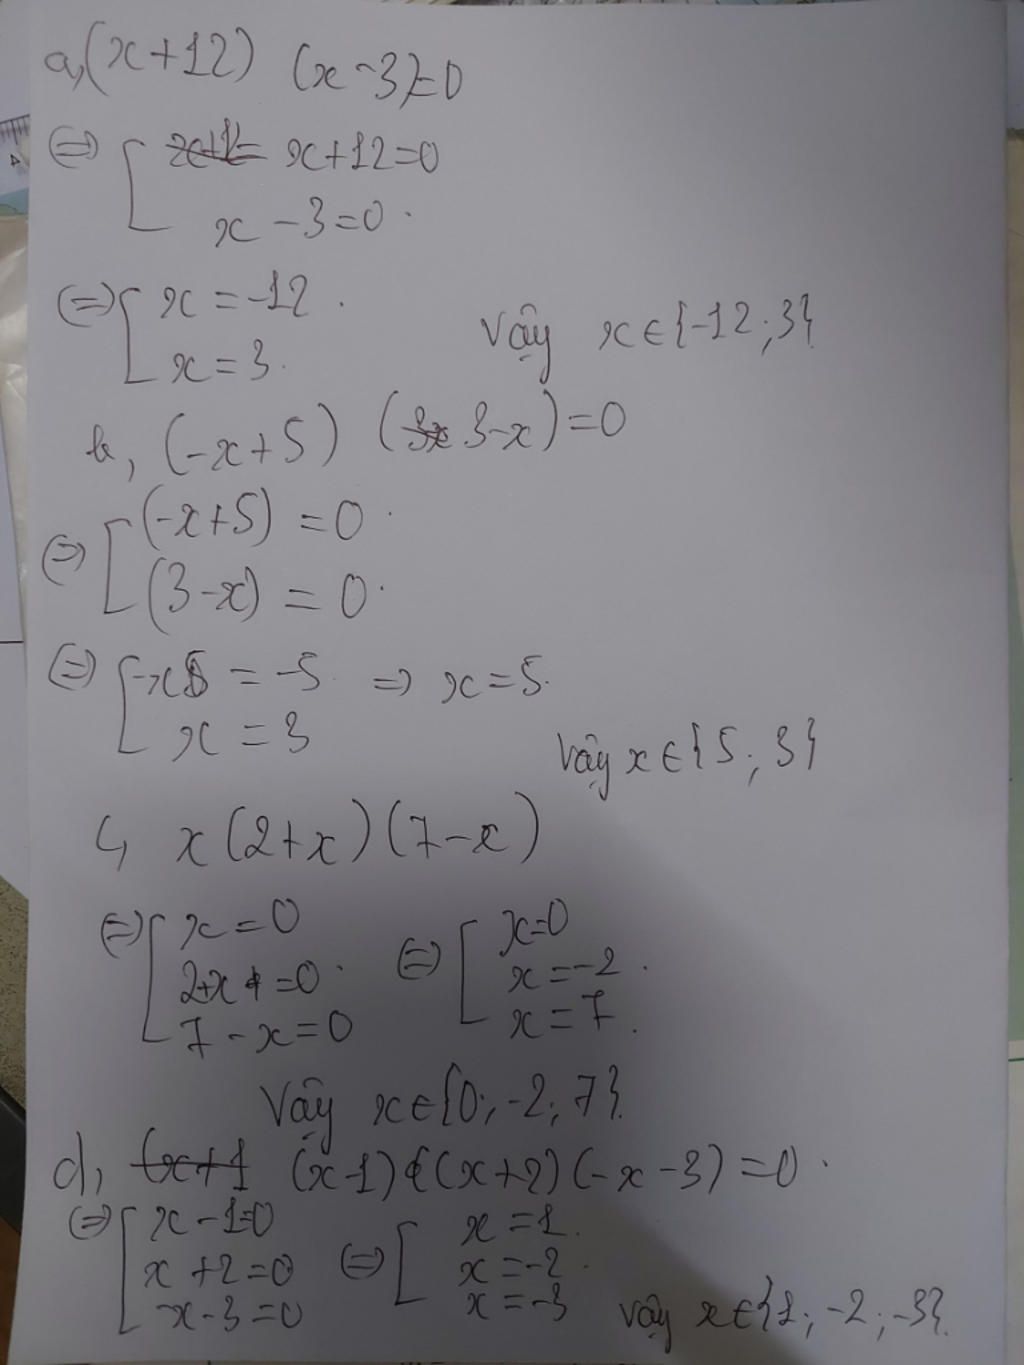 a, (x+12) (x-3)=0
⇔ [ x+12=0
x-3=0.
⇔ [ x=-12.
x=3.
Vậy x∈{-12;3}
b, (-x+5) (3-x)=0
⇔ [ (-x+5) = 0.
(3-x) = 0.
⇔ [ -x = -5 ⇒ x=5.
x = 3
Vậy x∈{5;3}
c, x(2+x)(7-x)
⇔ [ x=0 ⇔ [ x=0
2+x=0. x=-2.
7-x=0 x=7.
Vậy x∈{0;-2;7}.
d, (x-1)(x+2)(-x-3)=0.
⇔ [ x-1=0 ⇔ [ x=1.
x+2=0 x=-2.
-x-3=0 x=-3
Vậy x∈{1;-2;-3}.